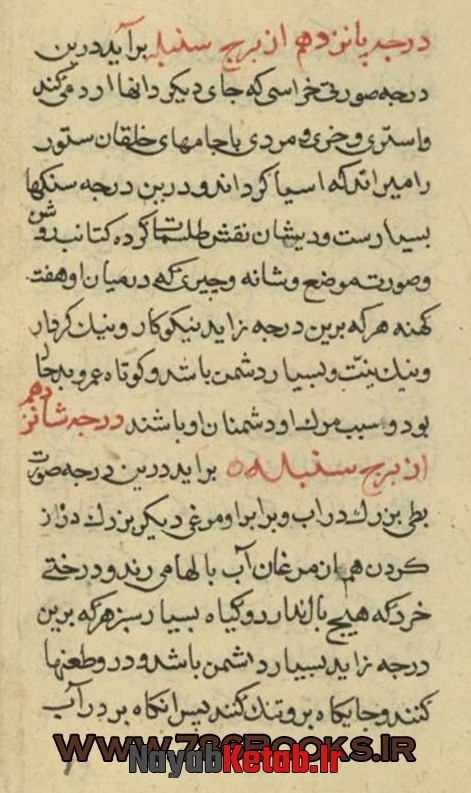 درجه پانزدهم از برج سنبله برآید درین
درجه صورتی خراسی که جای دیکر دانها ارد می کند
و استری و خری و مردی با جامهای خلقان ستور
را میراند که اسیا کرداند و درین درجه سنکها
بسیارست و دیشان نقش طلسمات کرده کتاب روشن
و صورت موضع و شانه و چیزی که درمیان او هفت
کهنه هرکه برین درجه زاید نیکوکار و نیک کردار
و نیک نیت و بسیار دشمن باشد و کوتاه عمر و بدحال
بود و سبب مرک او دشمنان او باشند درجه شانزدهم
از برج سنبله براید درین درجه صورت
بطی بزرک در اب و برابر او مرغی دیکر بزرک دراز
کردن همان مرغان آب بالها می زند و درختی
خرد که هیچ بالندارد و کیاه بسیار سبز هرکه برین
درجه زاید بسیار دشمن باشد و درو طعنها
کنند و جایکاه برو تنک کنند پس انکاه بر در آب
WWW.786BOOKS.IR
NayabKetab.ir